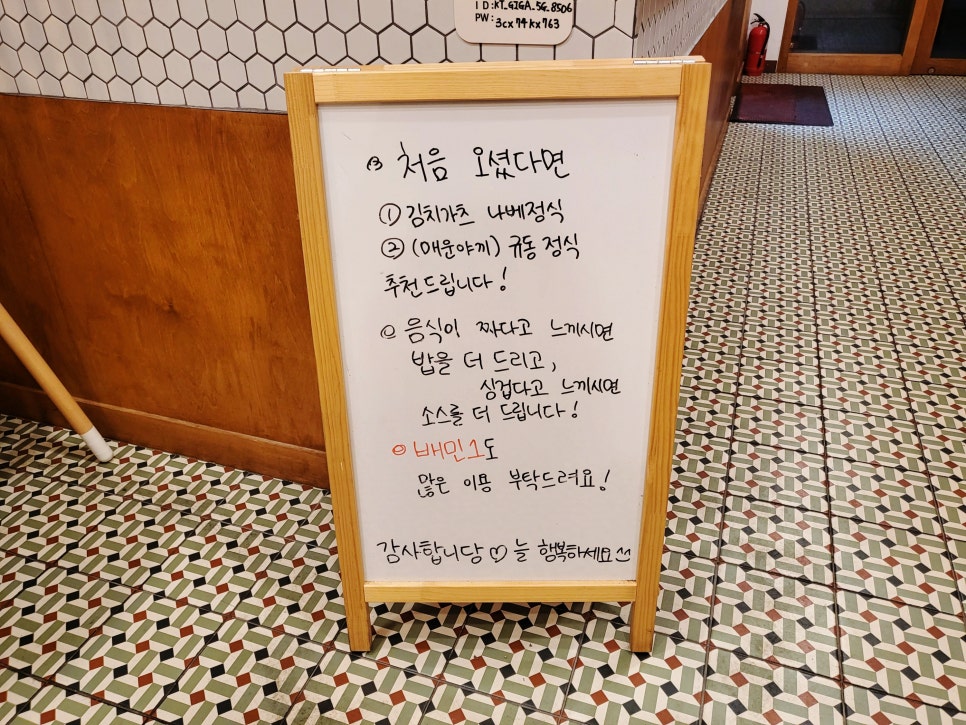 ID:KT_GIGA_5G_8506
PW:3cx74kx763
처음 오셨다면
① 김치가츠 나베정식
② (매운야끼) 규동 정식
추천드립니다!
음식이 짜다고 느끼시면
밥을 더 드리고,
싱겁다고 느끼시면
소스를 더 드립니다!
배민1도
많은 이용 부탁드려요!
감사합니당♡늘 행복하세요^^